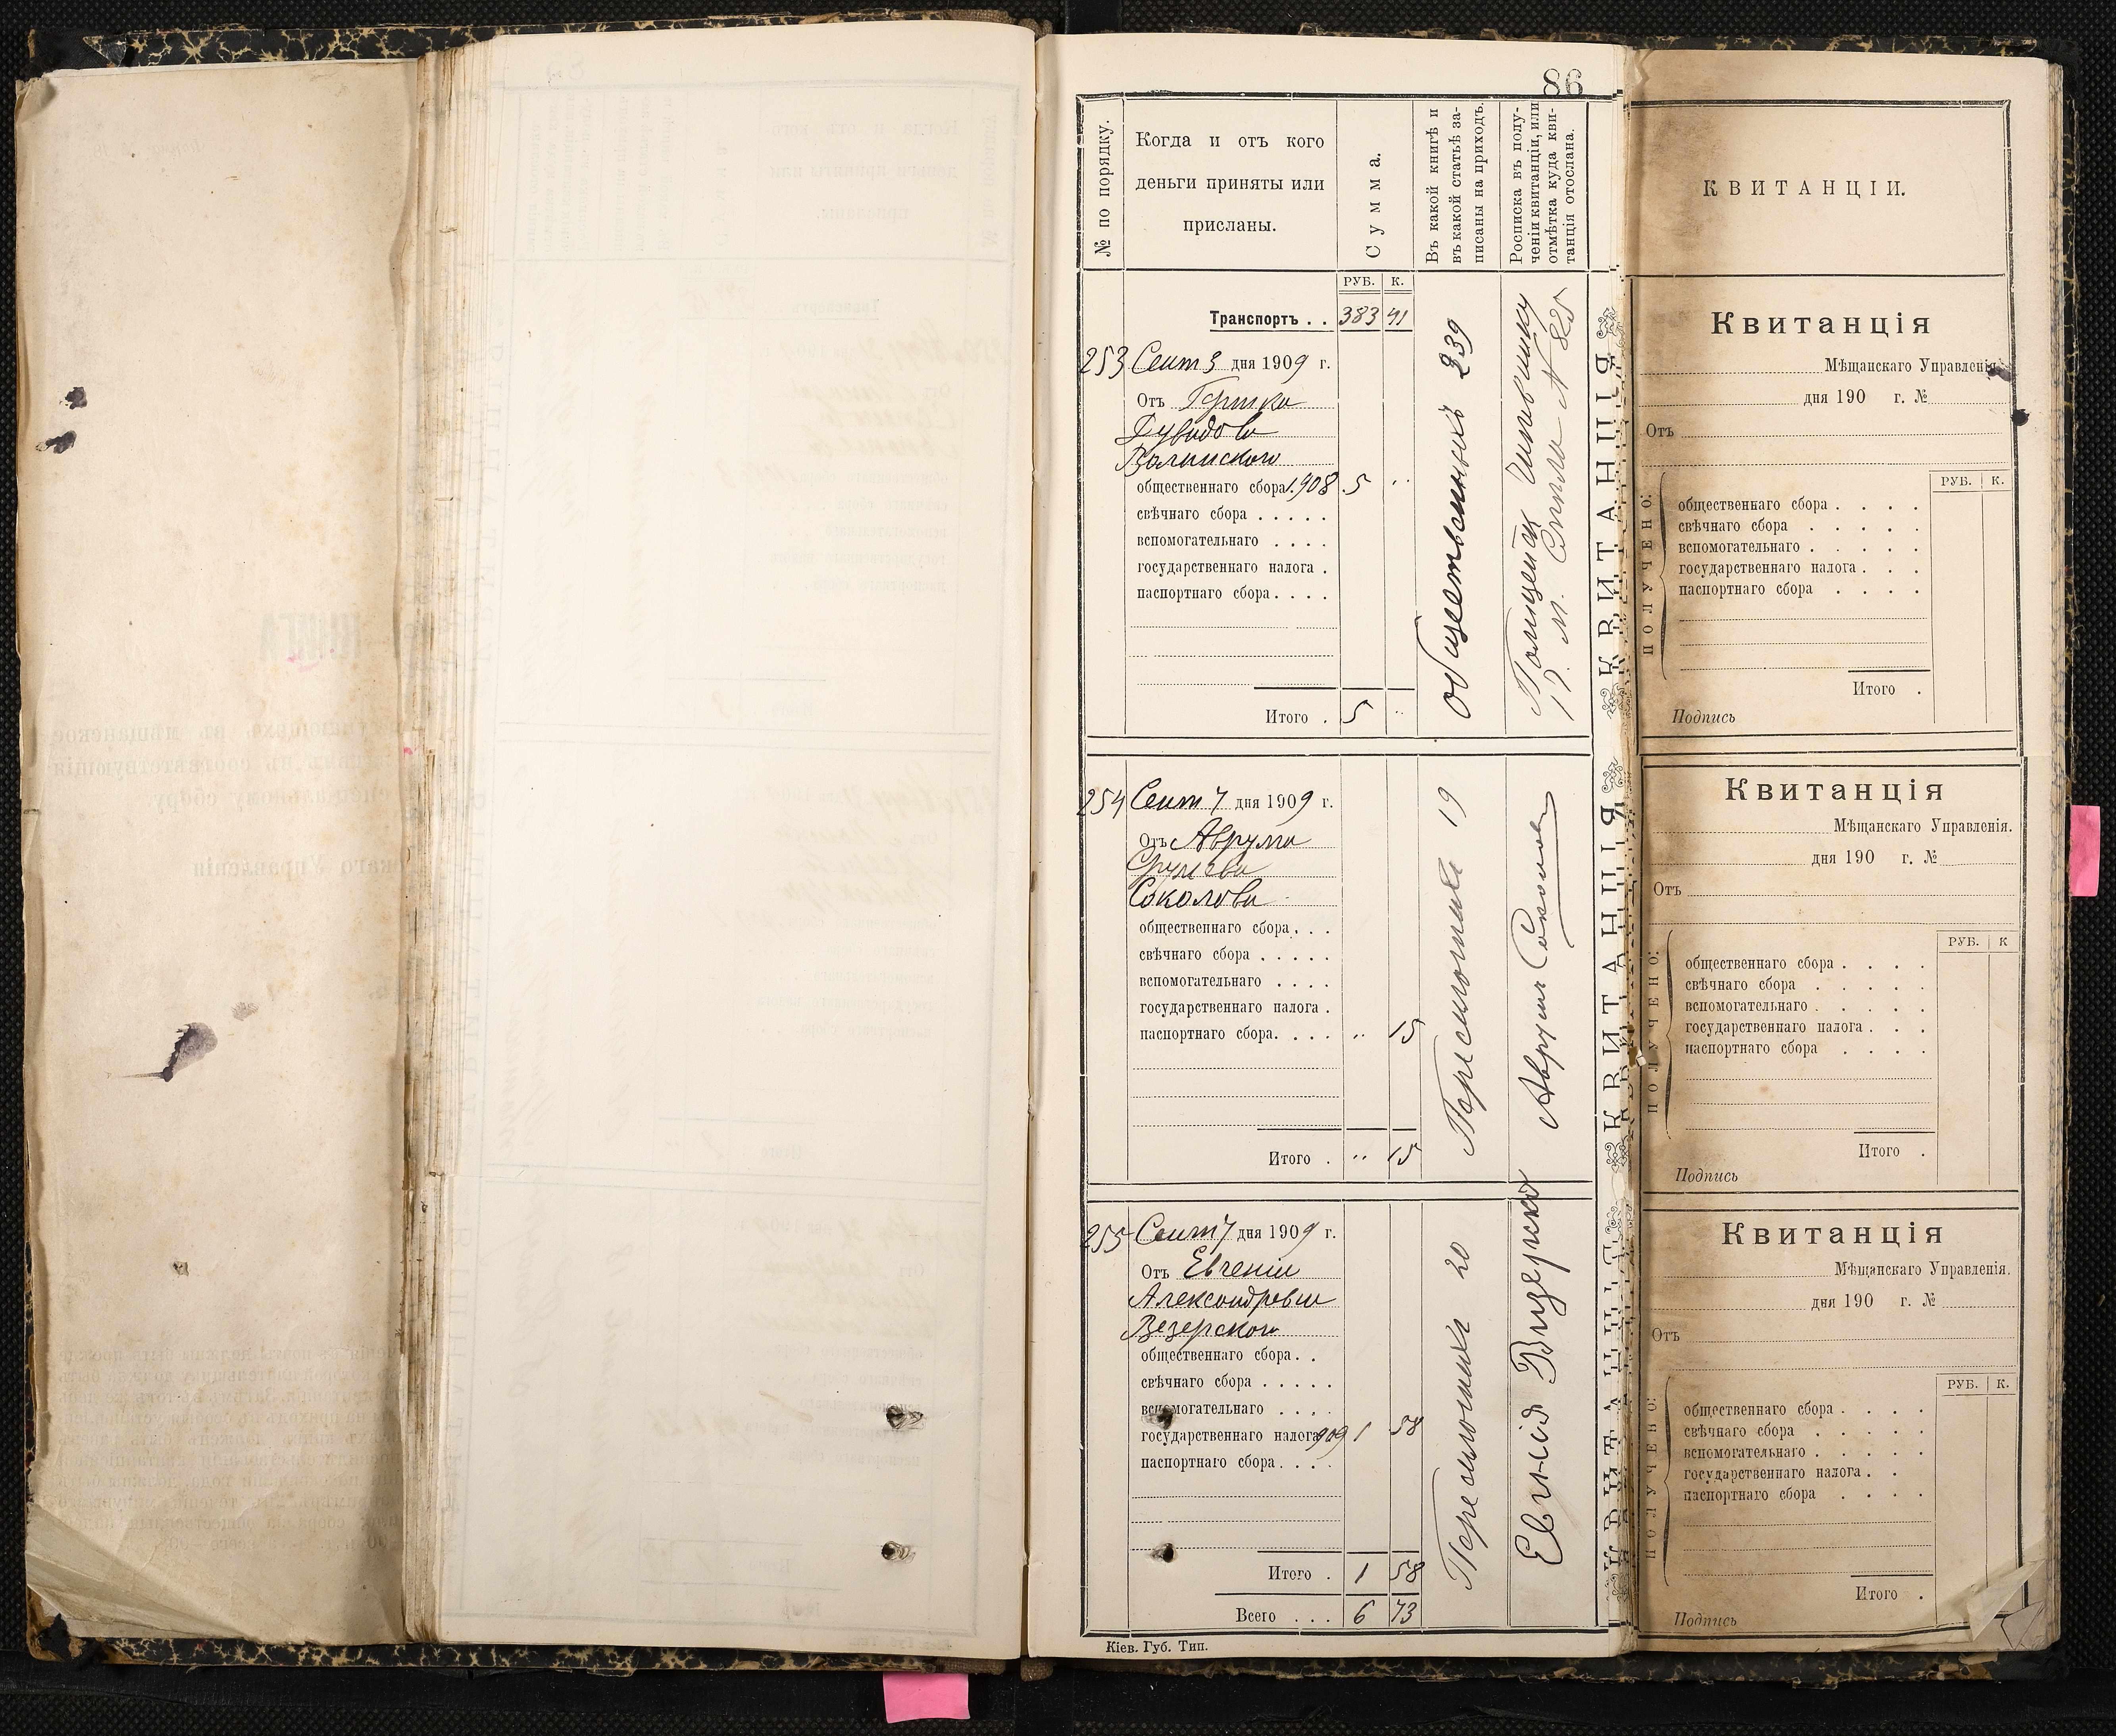 86
№ по порядку.
Когда и отъ кого
деньги приняты или
присланы.
Сумма.
Въ какой книгѣ и
въ какой статьѣ за-
писаны на приходъ.
Росписка въ полу-
ченіи квитанціи, или
отмѣтка куда кви-
танція отослана.
РУБ. К.
Транспортъ . . 383 41
253 Сент 3 дня 1909 г.
Отъ Гершка
Дувидова
Волинского
общественнаго сбора 1908 5 ..
свѣчнаго сбора . . . . .
вспомогательнаго . . . .
государственнаго налога .
паспортнаго сбора . . . .
Итого . 5 ..
общественный 239
Полицейск
М. № 885
254 Сент 7 дня 1909 г.
Отъ Аврума
Срулева
Соколова
общественнаго сбора . . .
свѣчнаго сбора . . . . .
вспомогательнаго . . . .
государственнаго налога .
паспортнаго сбора . . . . .. 15
Итого . .. 15
19
Аврумъ Соколов
255 Сент 7 дня 1909 г.
Отъ Евгеніи
Александровы
Везерской
общественнаго сбора . .
свѣчнаго сбора . . . . .
вспомогательнаго . . . .
государственнаго налога 909 1 58
паспортнаго сбора . . . .
Итого . 1 58
Всего . . . 6 73
20
Евгенія Визерска
Кіев. Губ. Тип.
КВИТАНЦІЯ
КВИТАНЦІЯ
КВИТАНЦІЯ
КВИТАНЦІИ.
Квитанція
Мѣщанскаго Управленія
дня 190 г. №
Отъ
РУБ. К.
ПОЛУЧЕНО:
общественнаго сбора . . . .
свѣчнаго сбора . . . . .
вспомогательнаго . . . . .
государственнаго налога . . .
паспортнаго сбора . . . .
Итого .
Подпись
Квитанція
Мѣщанскаго Управленія.
дня 190 г. №
Отъ
РУБ. К
ПОЛУЧЕНО:
общественнаго сбора . . . .
свѣчнаго сбора . . . . .
вспомогательнаго . . . . .
государственнаго налога . . .
паспортнаго сбора . . . .
Итого .
Подпись
Квитанція
Мѣщанскаго Управленія.
дня 190 г. №
Отъ
РУБ. К.
ПОЛУЧЕНО:
общественнаго сбора . . . .
свѣчнаго сбора . . . . .
вспомогательнаго . . . . .
государственнаго налога . .
паспортнаго сбора . . . .
Итого .
Подпись